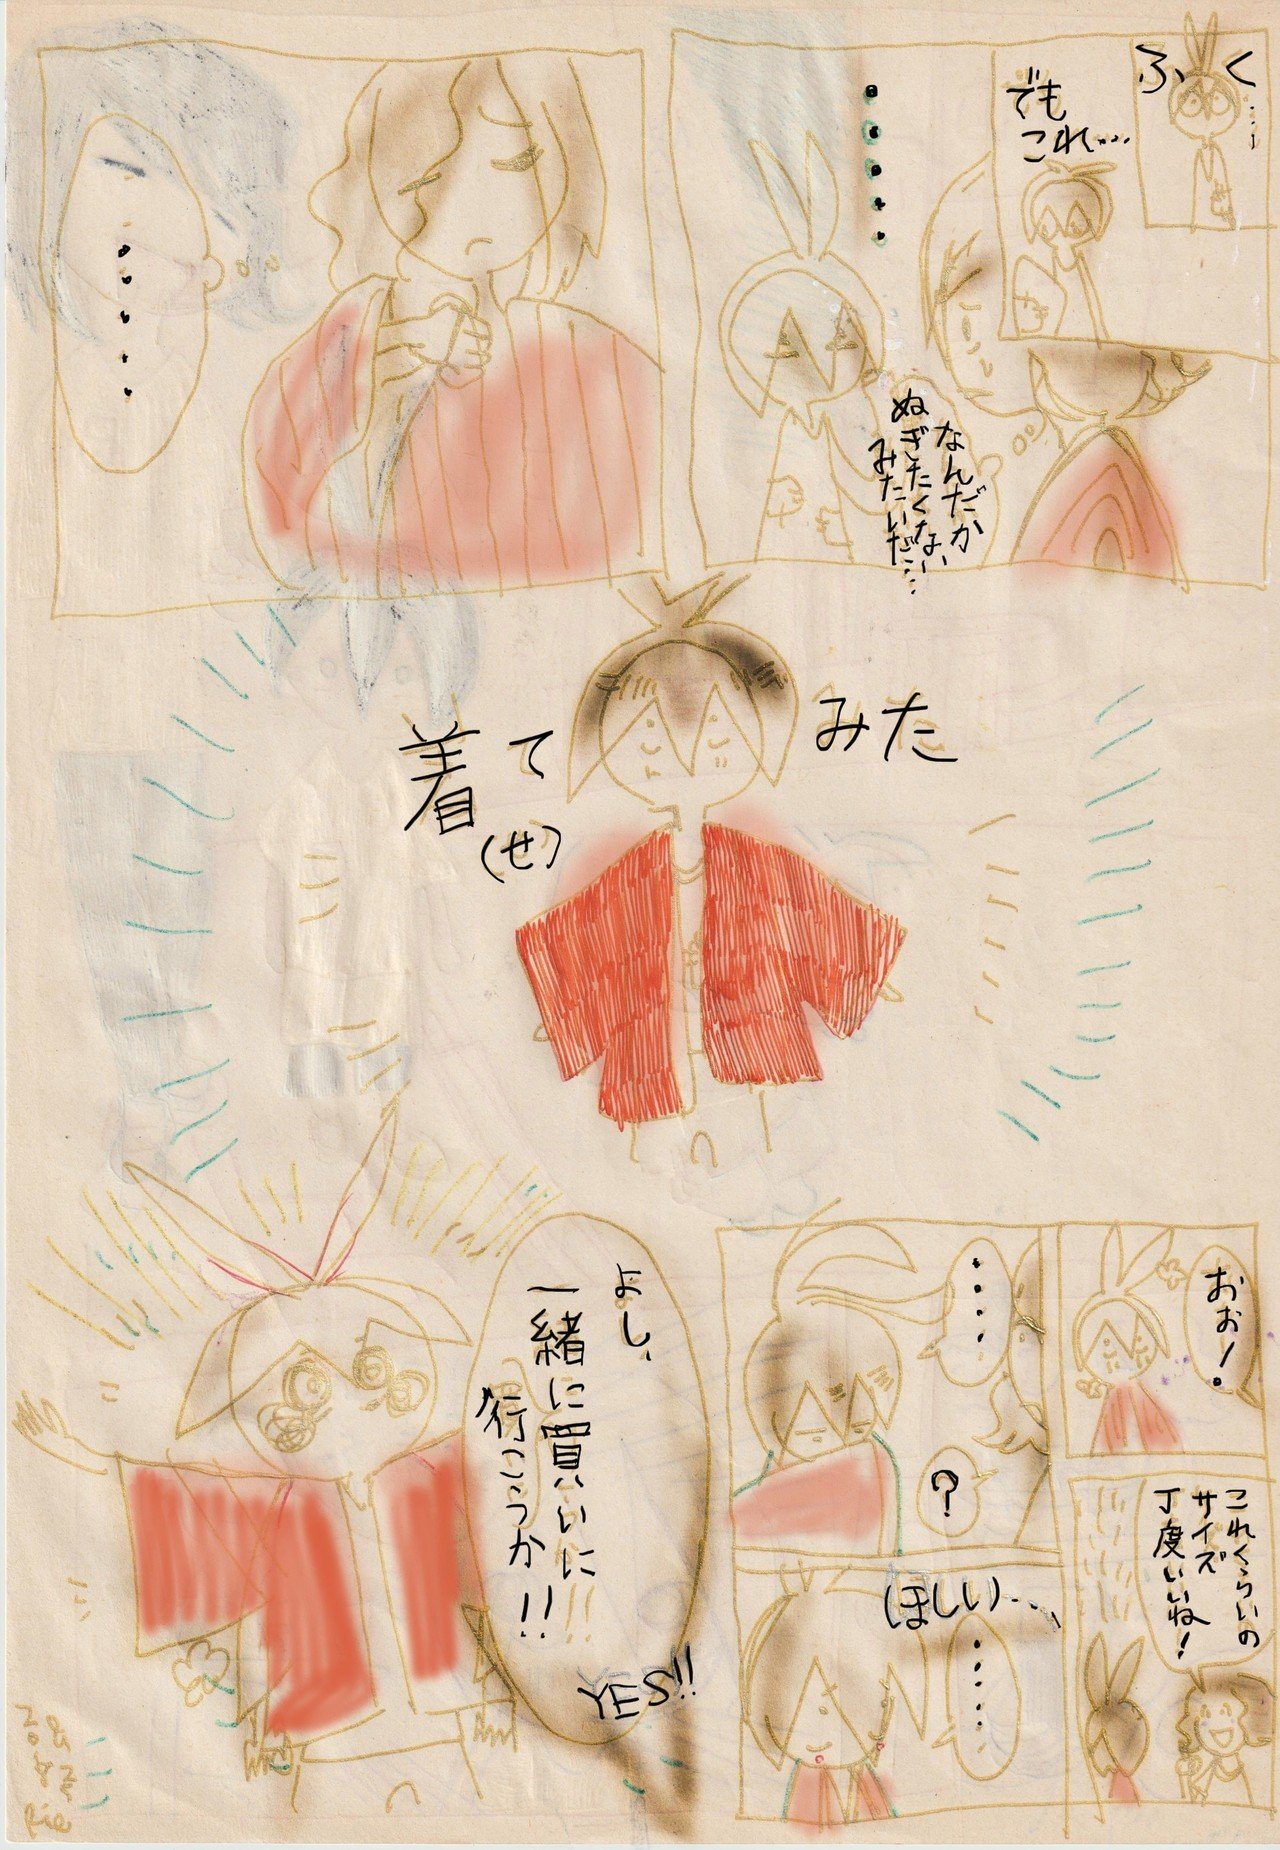 ふく…
でも
これ…
・・・・・
なんだか
ぬぎたくない
みたいだ…
・・・・・
着て
(せ)
みた
おぉ！
これくらいの
サイズ
丁度いいね！
・・・・
？
ほしい…
・・・・・
よし、
一緒に買いに
行こうか!!
YES!!
Rie